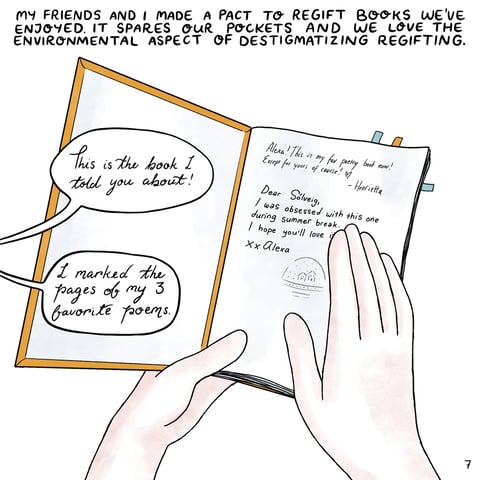 MY FRIENDS AND I MADE A PACT TO REGIFT BOOKS WE'VE
ENJOYED. IT SPARES OUR POCKETS AND WE LOVE THE
ENVIRONMENTAL ASPECT OF DESTIGMATIZING REGIFTING.
This is the book I
told you about!
I marked the
pages of my 3
favorite poems.
Alexa! This is my fav poetry book ever!
Except for yours of course!
- Henrietta
Dear Sólveig,
I was obsessed with this one
during summer break.
I hope you'll love i
xx Alexa
7